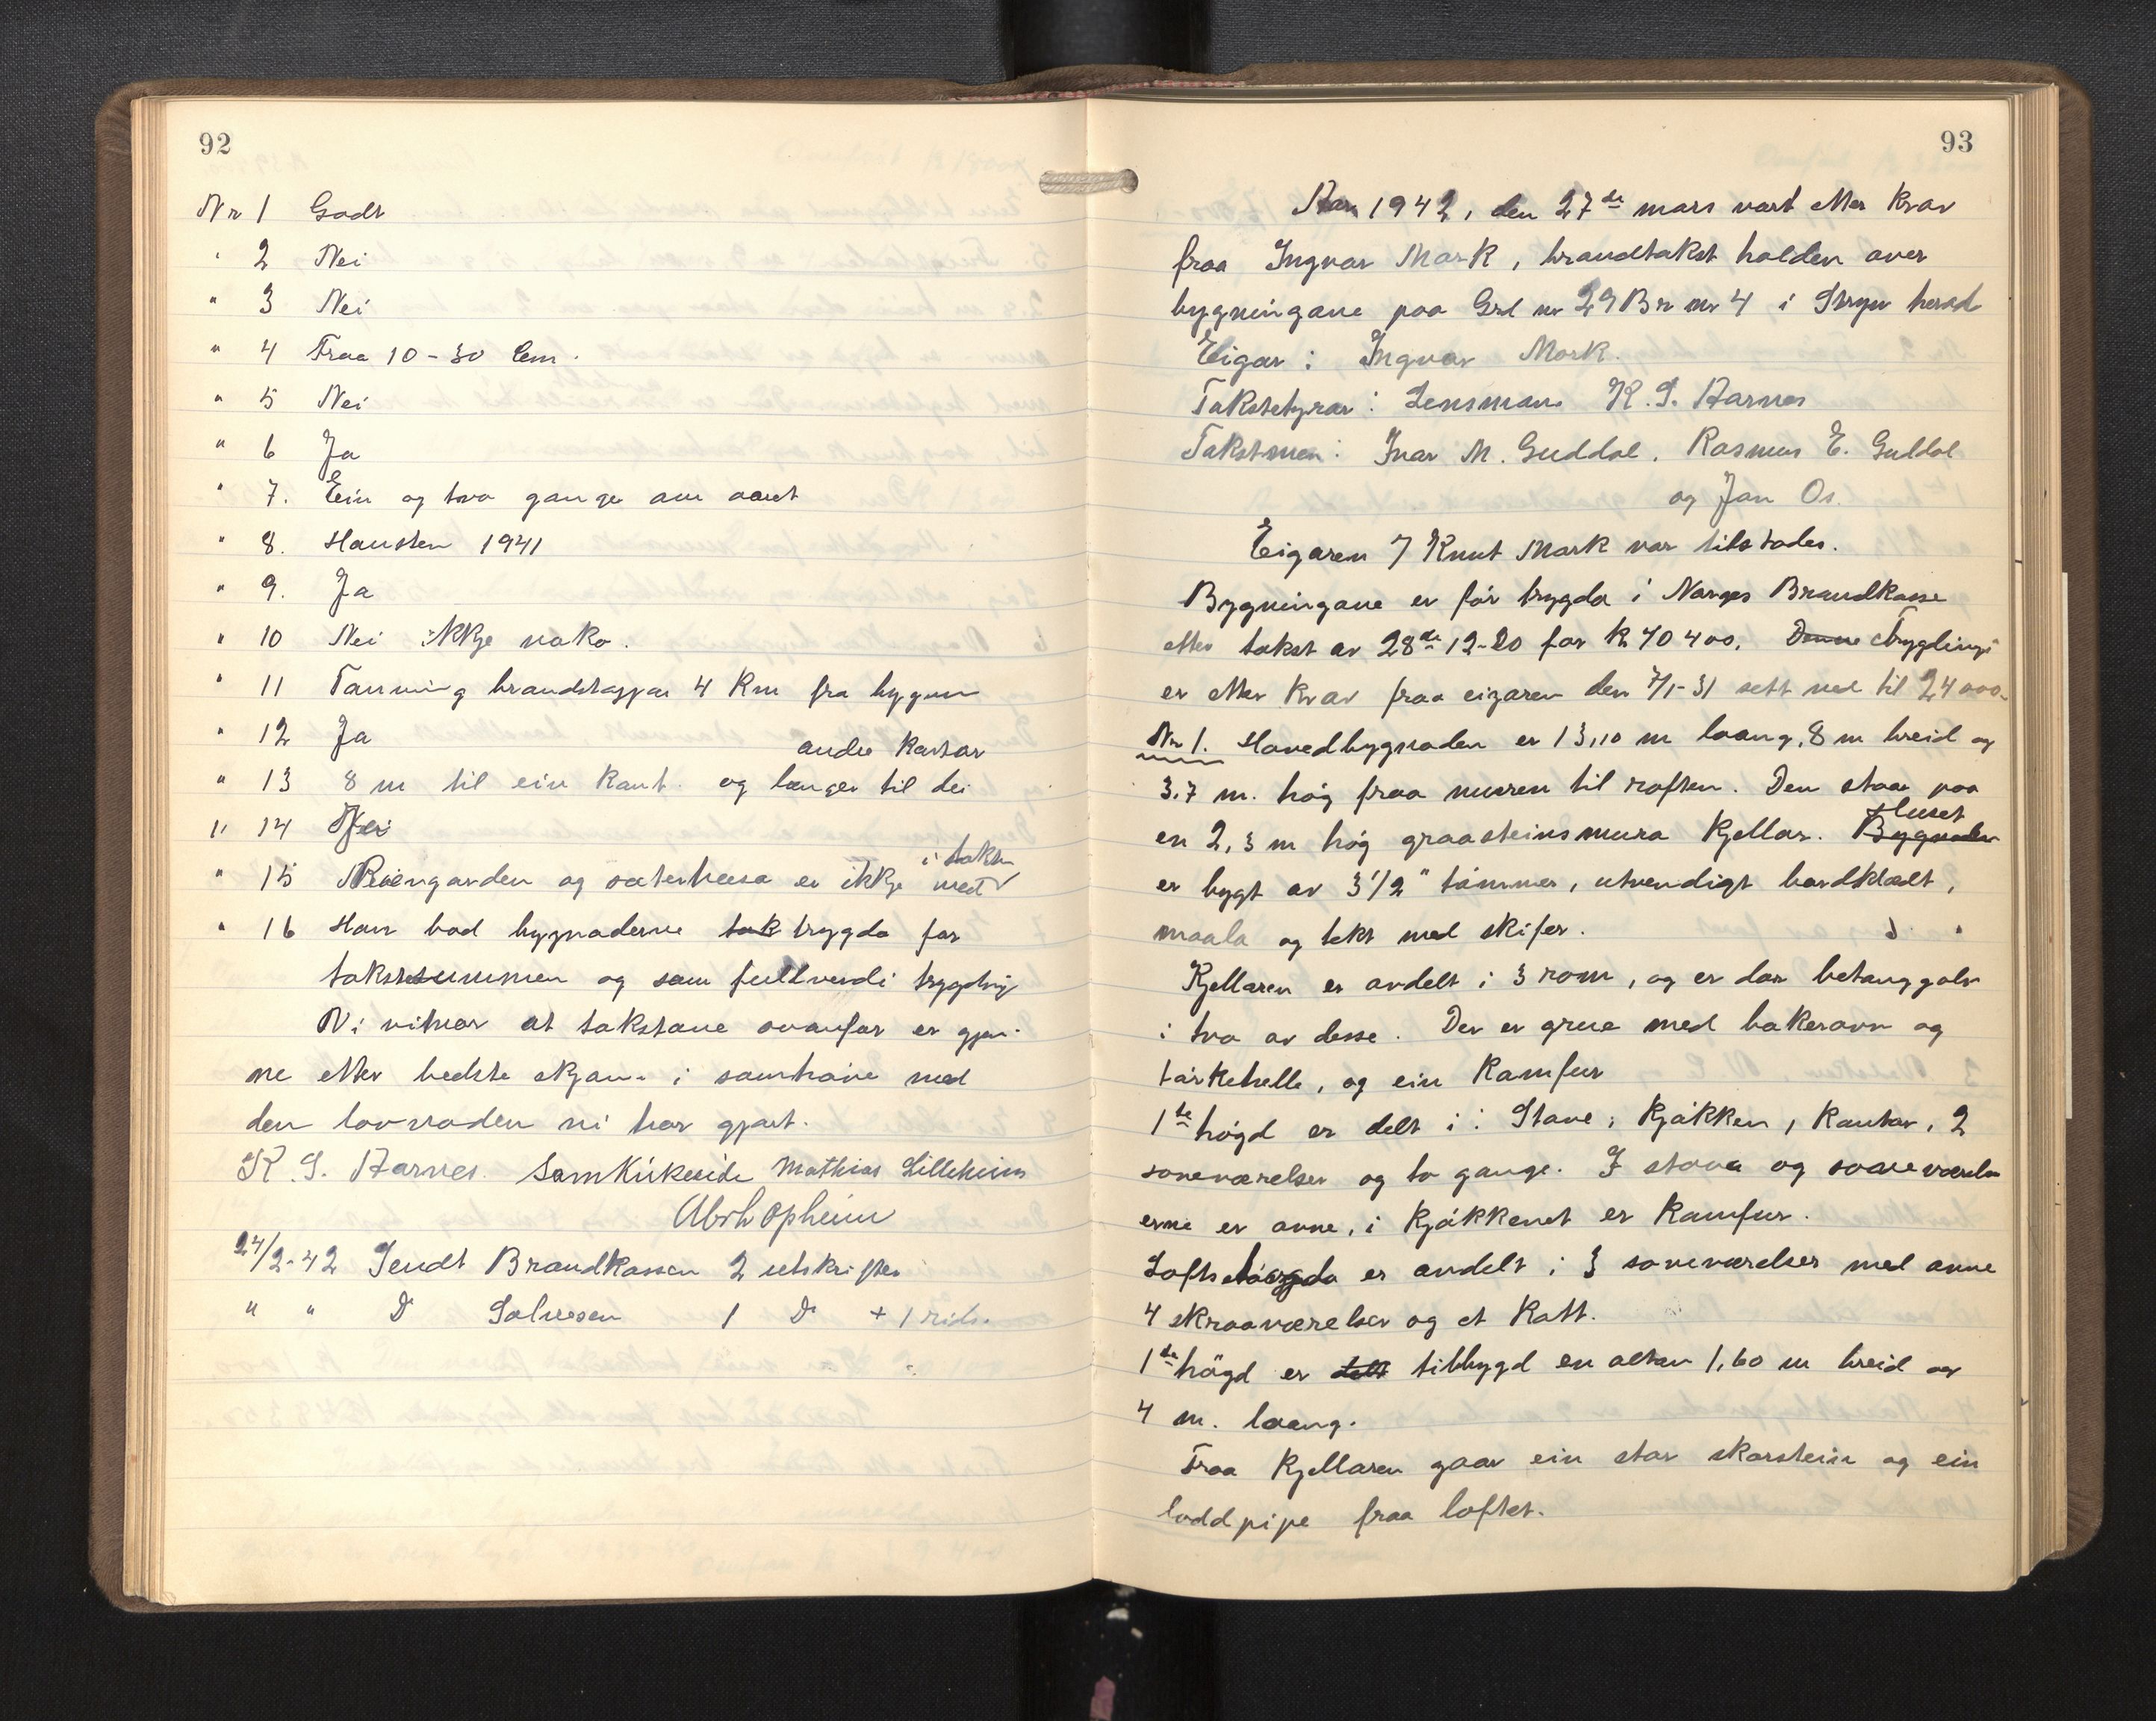 92
Nr 1 Godt
" 2 Nei
" 3 Nei
" 4 Fraa 10 - 30 Cm.
" 5 Nei
" 6 Ja
" 7. Ein og two gange om aaret
" 8. Hausten 1941
" 9. Ja
" 10 Nei ikkje noko.
" 11 Tonning brandstasjon 4 Km fra bygnn
" 12 Ja
andre kantar
" 13 8 m til ein kant. og lenger til dei
" 14 Nei
i taksten
" 15 Røiengarden og sæterhusa er ikkje med
" 16 Han bad bygnaderne tak trygda for
takstsummen og som fullverdi trygding
Vi vitnar at takstane ovanfor er gjen-
ne etter bedste skjøn i samhøve med
den lovnaden vi har gjort.
K. S. Aarnes. Sam Kirkeeide Mathias Lilleheim
Abrh Opheim
24/2-42 Sendt Brandkassen 2 utskrifter
" " Do Salvesen 1 Do + 1 rids.
93
Aar 1942, den 27de mars vart etter krav
fraa Ingvar Mork, brandtakst halden over
bygningane paa Grd nr 29 Br nr 4 i Stryn herad
Eigar: Ingvar Mork.
Takststyrar: Lensmann K. S. Aarnes
Takstmen: Ivar M. Guddal, Rasmus E. Guddal
og Jon Os.
Eigaren & Knut Mork var tilstades.
Bygningane er før trygda i Norges Brandkasse
etter takst av 28de 12-20 for kr 40 400. Denne Trygdingi
er etter krav fraa eigaren den 7/1-31 sett ned til 24 000.
Nr 1. Hovedbygnaden er 13,10 m laang, 8 m breid og
3,7 m. høg fraa muren til raften. Den staar paa
en 2,3 m høg graasteinsmura kjellar. Bygnaden Huset
er bygt av 3 1/2" tømmer, utvendigt bordklædt,
maala og tekt med skifer.
Kjellaren er avdelt i 3 rom, og er dar betonggolv
i tvo av desse. Der er grue med bakerovn og
tørkehelle, og ein Kamfur
1ste høgd er delt i: Stove, Kjøkken, Kontor, 2
soveværelser og to gange. I stova og soveværels
erne er ovne, i Kjøkkenet er Kamfur.
Loftshøgda er avdelt i 3 soveværelser med ovne
4 skraaværelser og et Kott.
1ste høgd er delt tilbygd en altan 1,60 m breid og
4 m. laang.
Fraa Kjellaren gaar ein stor skorstein og ein
loddpipe fraa loftet.